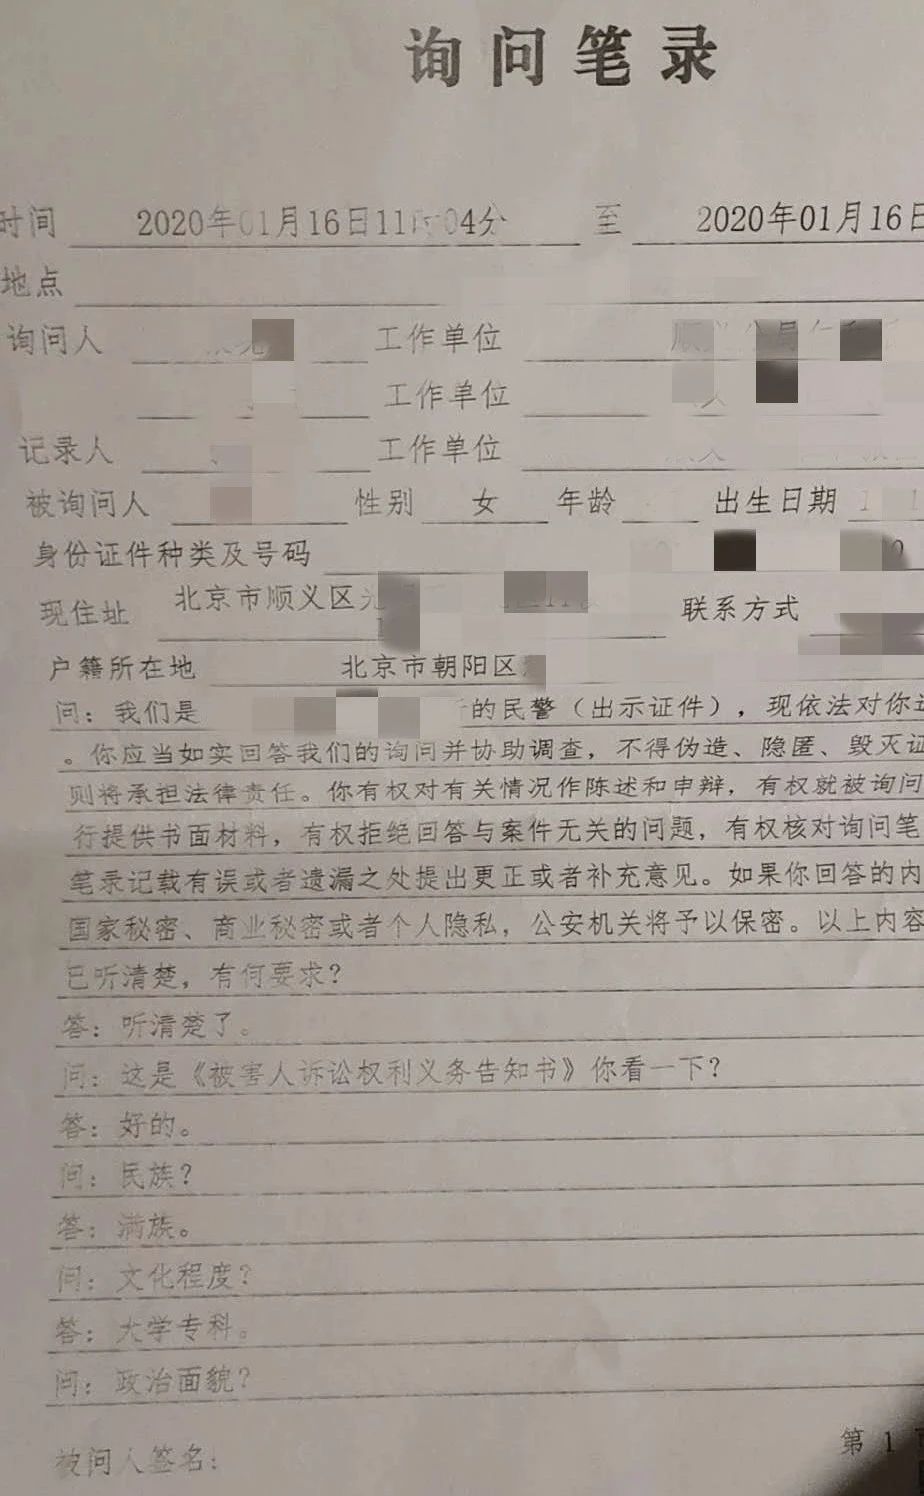 询问笔录
时间 2020年01月16日11时04分 至 2020年01月16日
地点
询问人 工作单位
工作单位
记录人 工作单位
被询问人 性别 女 年龄 出生日期
身份证件种类及号码
现住址 北京市顺义区 联系方式
户籍所在地 北京市朝阳区
问：我们是 的民警（出示证件），现依法对你
。你应当如实回答我们的询问并协助调查，不得伪造、隐匿、毁灭证
则将承担法律责任。你有权对有关情况作陈述和申辩，有权就被询问
行提供书面材料，有权拒绝回答与案件无关的问题，有权核对询问笔
笔录记载有误或者遗漏之处提出更正或者补充意见。如果你回答的内
国家秘密、商业秘密或者个人隐私，公安机关将予以保密。以上内容
已听清楚，有何要求？
答：听清楚了。
问：这是《被害人诉讼权利义务告知书》你看一下？
答：好的。
问：民族？
答：满族。
问：文化程度？
答：大学专科。
问：政治面貌？
第 1
被问人签名：